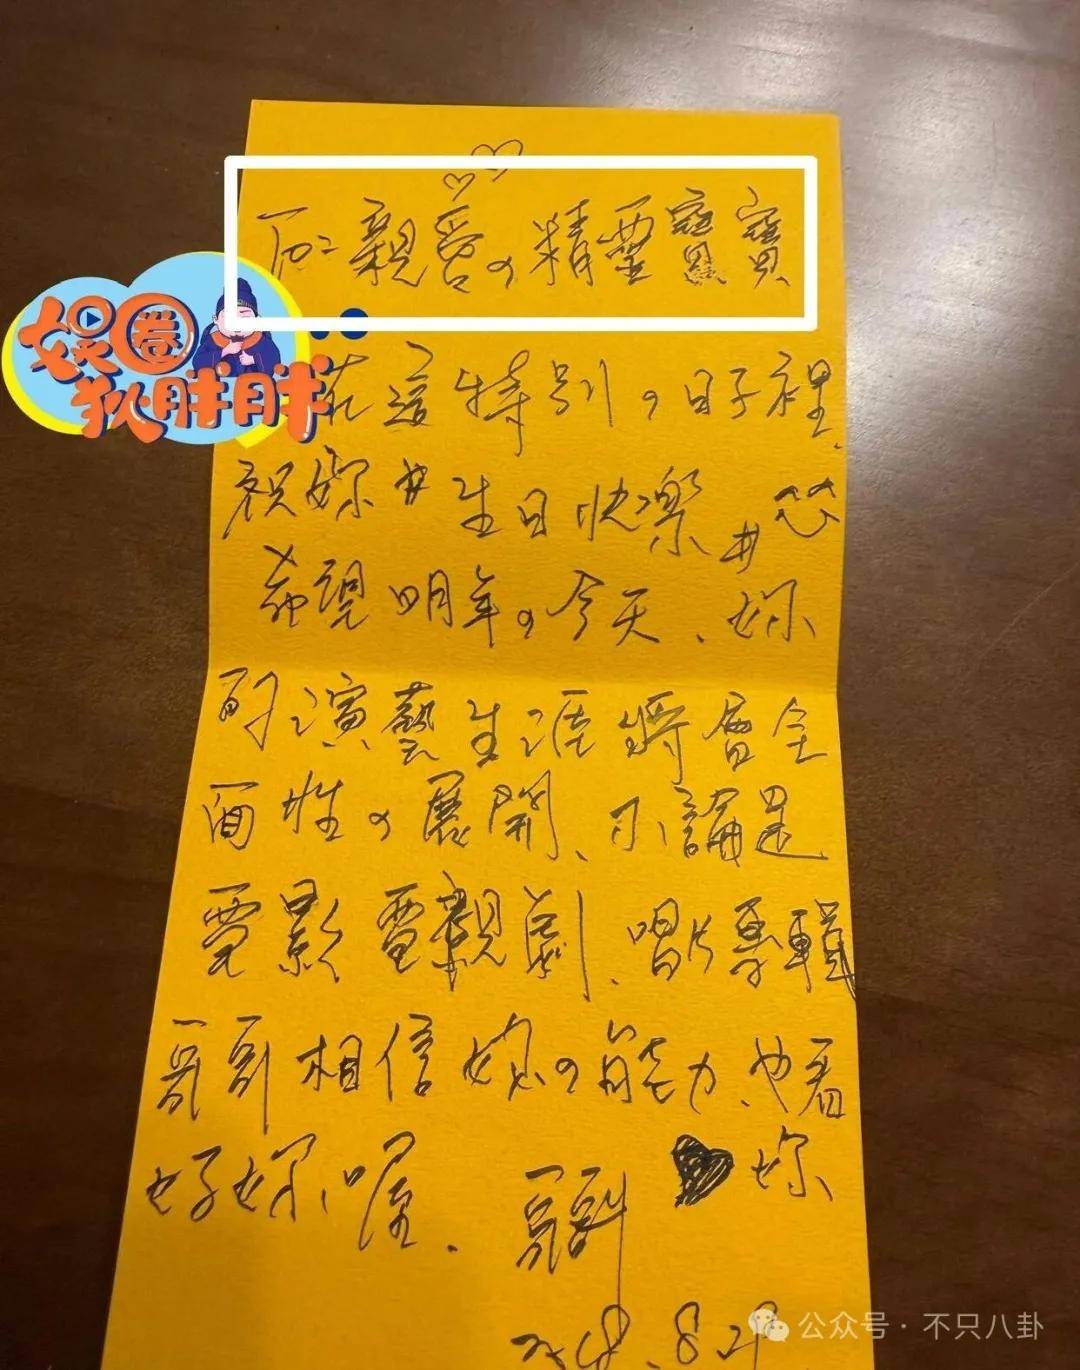 親愛の精靈寶寶
娱圈
狄胖胖
在這特別の日子裡、
祝妳#生日快樂#
希望明年の今天、妳
的演藝生涯將會全
面性の展開、不論是
電影電視劇、唱片專輯
哥哥相信妳の能力、也看
好妳、喔、
哥哥 妳
公众号·不只八卦